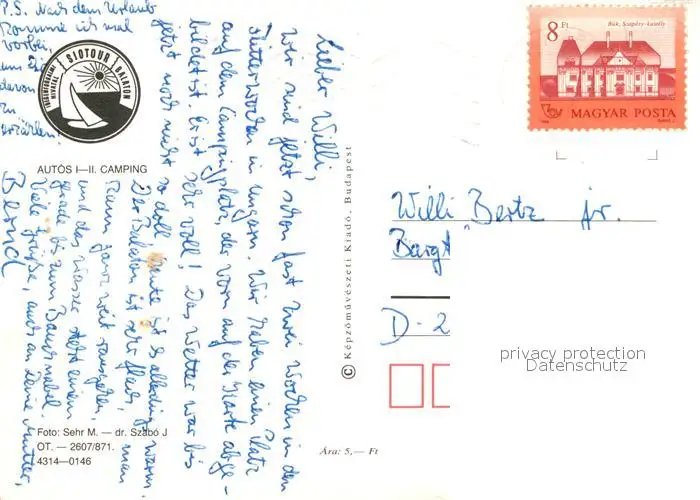 P.S. Nach dem Urlaub
komme ich mal
vorbei,
um Dir
davon
zu
erzählen!
SIOTOUR BALATON
AUTÓS I—II. CAMPING
Lieber Willi,
wir sind jetzt schon fast zwei Wochen in den
Flitterwochen in Ungarn. Wir haben einen Platz
auf dem Campingplatz, der vorn auf der Karte abge-
bildet ist. Er ist sehr voll! Das Wetter war bis
jetzt noch nicht so doll, heute ist es allerdings warm.
Der Balaton ist sehr flach, man
kann ganz weit rausgehen,
und das Wasser steht einem
grade bis zum Bauchnabel.
Viele Grüße, auch an Deine Mutter,
Bernd
Foto: Sehr M. — dr. Szabó J
OT. — 2607/871.
4314—0146
© Képzőművészeti Kiadó, Budapest
Ára: 5,— Ft
8 Ft
Bük, Szapáry-kastély
MAGYAR POSTA
Willi Bertz jr.
Bargt
D-2
privacy protection
Datenschutz